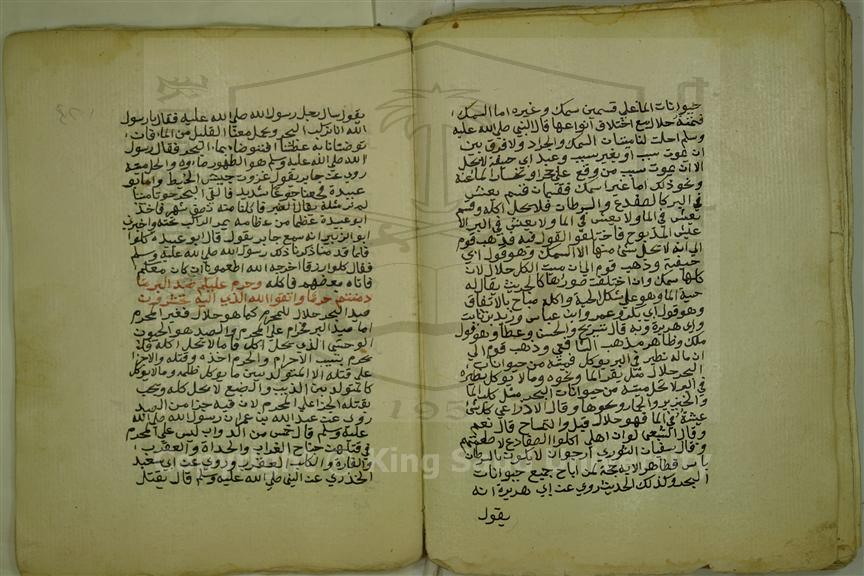 حيوانات الماء على قسمين سمك وغيره اما السمك
فميتته حلال مع اختلاف انواعها قال النبي صلى الله عليه
وسلم احلت لنا ميتتان السمك والجراد ولا فرق بين
ان يموت بسبب او بغير سبب وعند ابي حنيفة لا يحل
الا ان يموت بسبب من وقوع على حجر او انحسار الماء عنه
ونحو ذلك اما غير السمك فقسمان قسم يعيش
في البر كالضفدع والسرطان فلا يحل اكله وقسم
يعيش في الماء ولا يعيش في البر الا
عيش المذبوح فاختلفوا القول فيه فذهب قوم
الى انه لا يحل شئ منها الا السمك وهو قول ابي
حنيفة وذهب قوم الى ان ميت الكل حلال لان
كلها سمك وان اختلفت صورتها كالجريث يقال له
حية الماء وهو على شكل الحية واكله مباح بالاتفاق
وهو قول ابي بكر وعمر وابن عباس وزيد بن ثابت
وابي هريرة وبه قال شريح والحسن وعطا وهو قول
ملك وظاهر مذهب الشافعي وذهب قوم الى
ان ماله نظير في البر يوكل فميتته من حيوانات
البحر حلال مثل بقر الماء ونحوه وما لا يوكل نظيره
في البر لا يحل ميتته من حيوانات البحر مثل كلب الماء
والخنزير والحمار ونحوها وقال الاوزاعي كل شئ
عيشه في الماء فهو حلال قيل والتمساح قال نعم
وقال الشعبي لو ان اهلي اكلوا الضفادع لاطعمتهم
وقال سفيان الثوري ارجوا ان لا يكون بالسرطان
باس فظاهر الاية حجة من اباح جميع حيوانات
البحر وكذلك الحديث روي عن ابي هريرة انه
يقول
يقول سال رجل رسول الله صلى الله عليه فقال يا رسول
الله انا نركب البحر ونحمل معنا القليل من الماء فان
توضئنا به عطشنا افنتوضا بماء البحر فقال رسول
الله صلى الله عليه وسلم هو الطهور ماوه والحل ميتته
روي عن جابر يقول غزوت جيش الخبط وامر ابو
عبيدة فجعنا جوعا شديدا فالقى البحر حوتا ميتا
لم نر مثله يقال العنبر فاكلنا منه نصف شهر فاخذ
ابو عبيدة عظما من عظامه فمر الراكب تحته واخبرني
ابو الزبير انه سمع جابر يقول قال ابو عبيدة كلوا
فلما قدمنا ذكرنا ذلك رسول الله صلى الله عليه وسلم
فقال كلوا رزقا اخرجه الله اطعمونا ان كان معكم
فاتاه بعضهم فاكله وحرم عليكم صيد البر ما
دمتم حرما واتقوا الله الذي اليه تحشرون
صيد البحر حلال للمحرم كما هو حلال لغير المحرم
اما صيد البر فحرام على المحرم والصيد هو الحيوان
الوحشي الذي يحل اكله فاما لا يحل اكله فلا
يحرم بسبب الاحرام والمحرم اخذه وقتله ولا جزا
على قتله الا المتولد بين ما يوكل لحمه وما لا يوكل
كالمتولد بين الذيب والضبع لا يحل اكله ويجب
بقتله الجزا على المحرم لان فيه جزا من الصيد
روي عن عبد الله بن عمر ان رسول الله صلى الله
عليه وسلم قال خمس من الدواب ليس على المحرم
في قتلهن جناح الغراب والحداة والعقرب
والفارة والكلب العقور وروي عن ابي سعيد
الخدري عن النبي صلى الله عليه وسلم قال يقتل